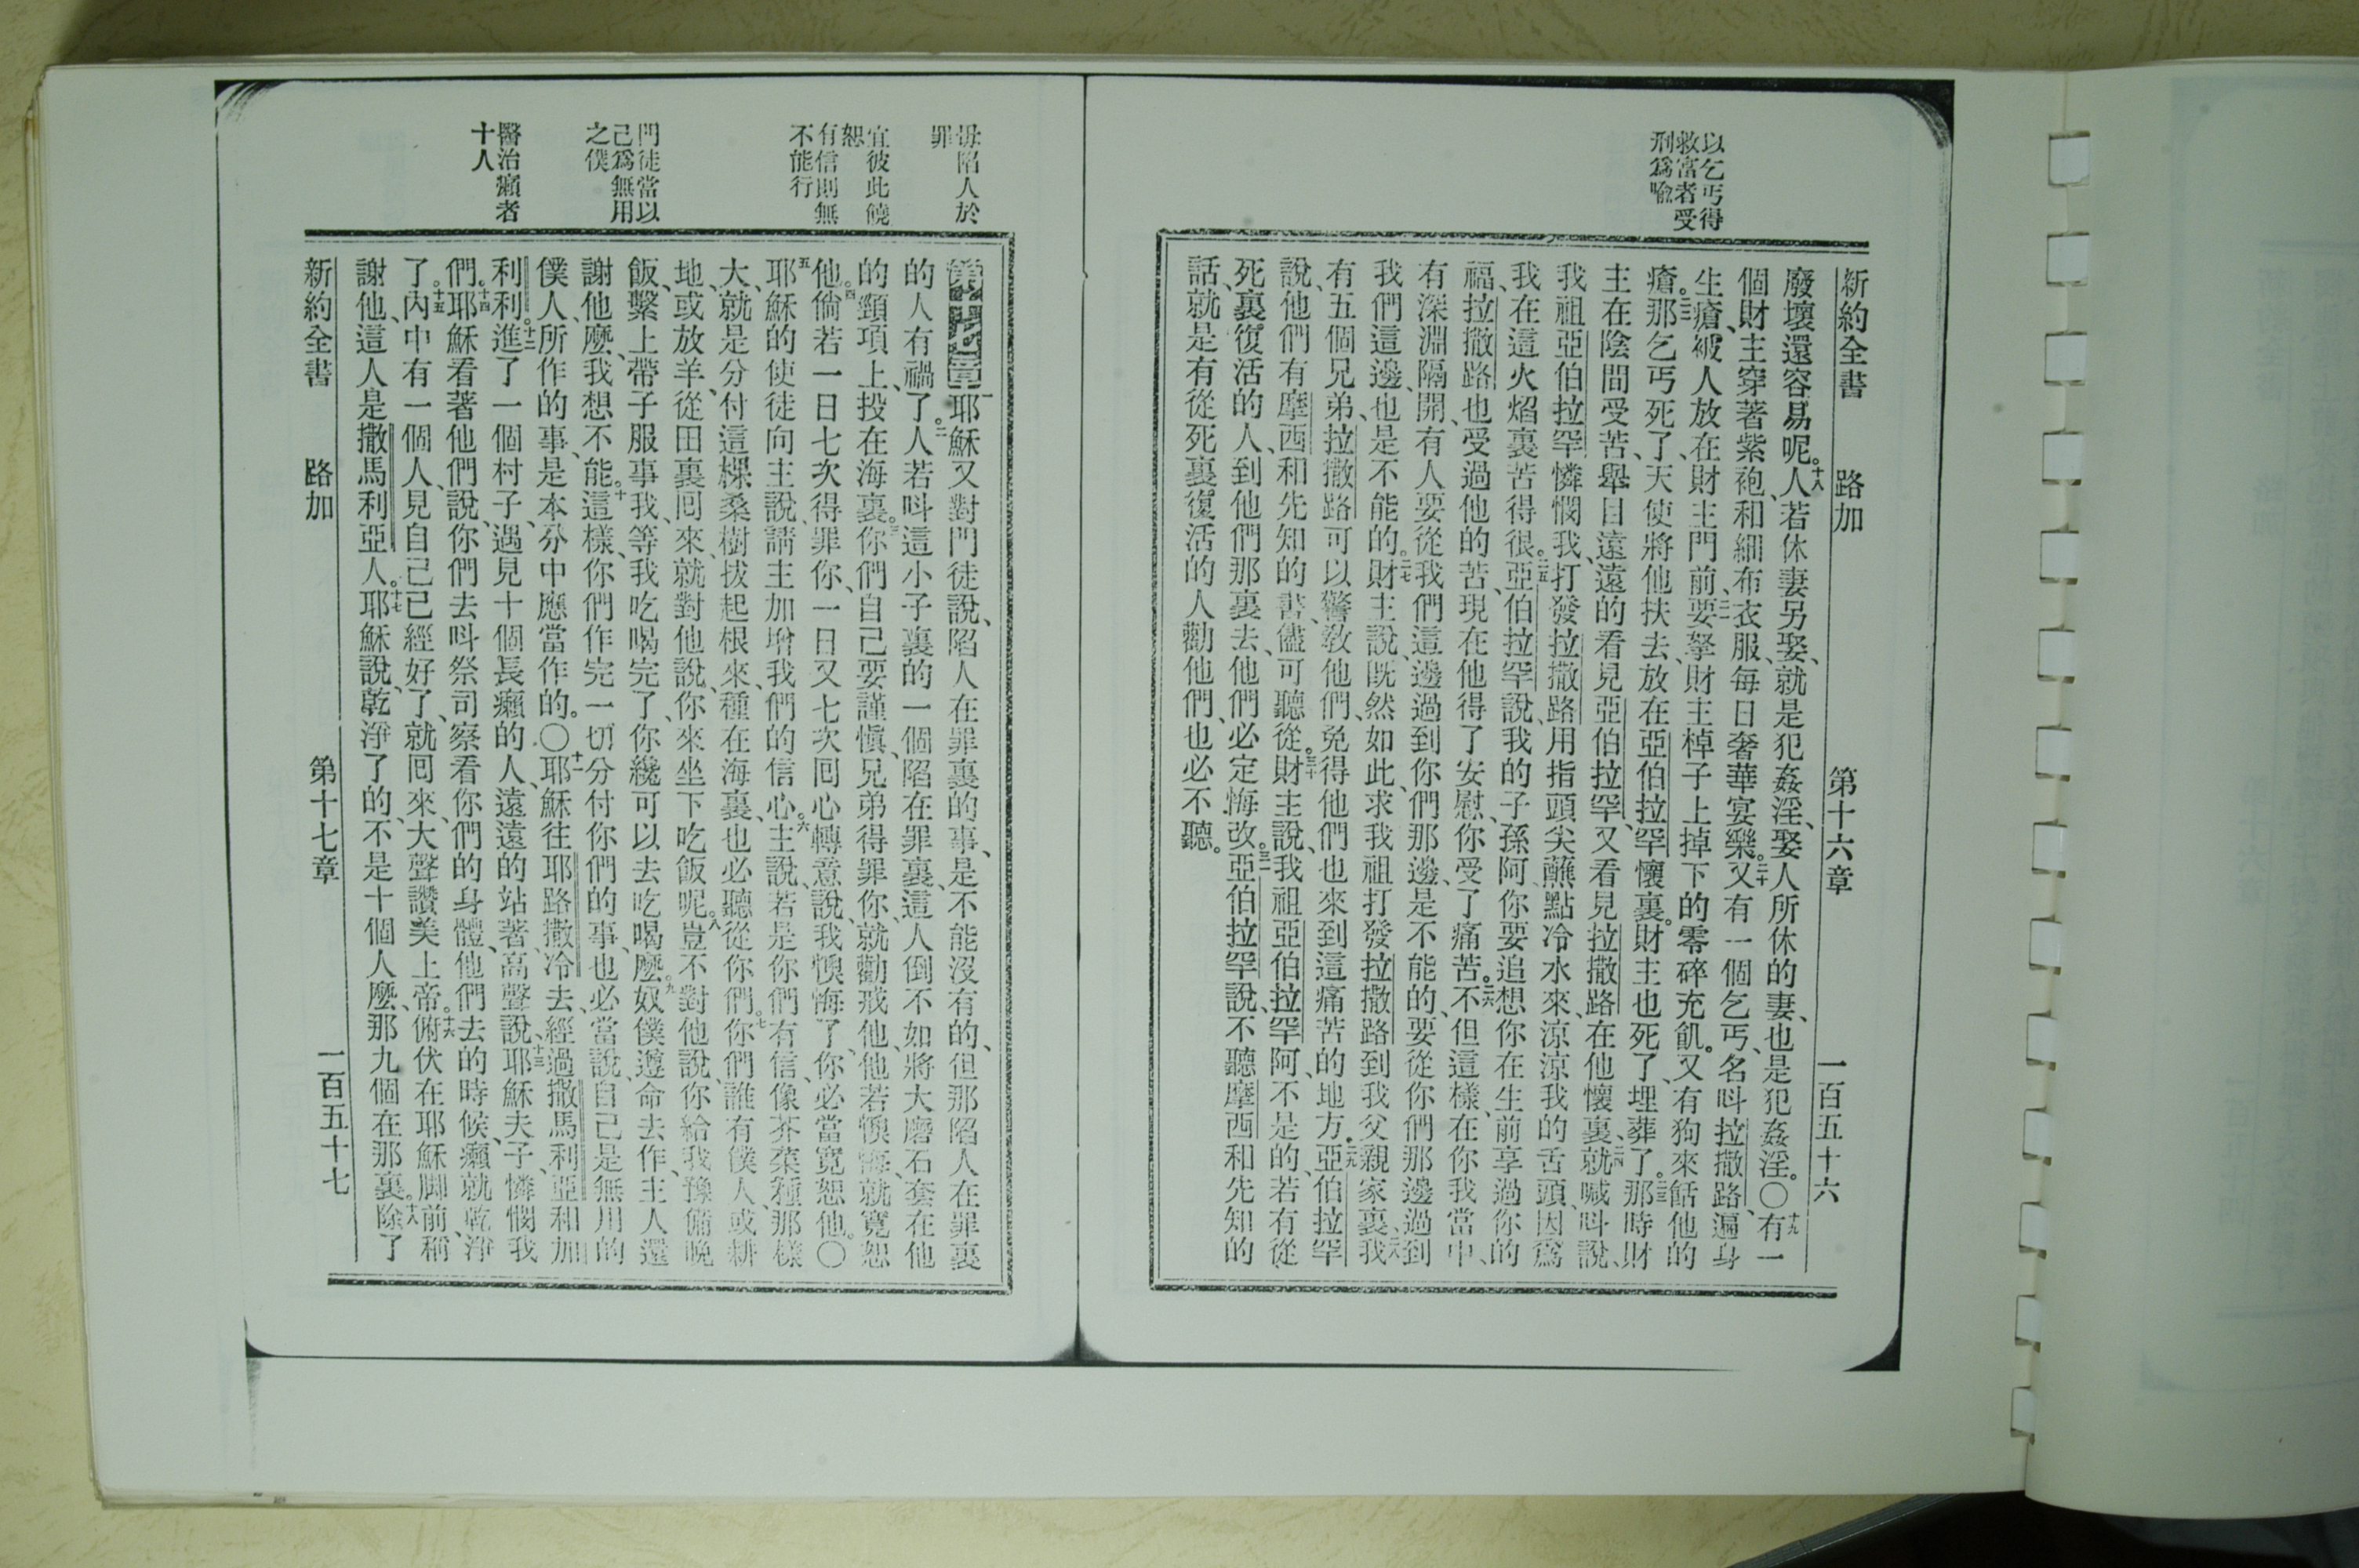 以乞丐得
救富者受
刑爲喻
新約全書 路加 第十六章 一百五十六
廢壞還容易呢。十八人若休妻另娶、就是犯姦淫、娶人所休的妻、也是犯姦淫。〇十九有一
個財主、穿著紫袍、和細布衣服、每日奢華宴樂。二十又有一個乞丐、名呌拉撒路、遍身
生瘡、被人放在財主門前、二一要拏財主棹子上掉下的零碎充飢。又有狗來餂他的
瘡。二二那乞丐死了、天使將他扶去、放在亞伯拉罕懷裏。財主也死了、埋葬了。二三那時財
主在陰間受苦、舉目遠遠的看見亞伯拉罕、又看見拉撒路在他懷裏、二四就喊呌說、
我祖亞伯拉罕憐憫我、打發拉撒路用指頭尖蘸點冷水來、涼涼我的舌頭、因爲
我在這火焰裏苦得很。二五亞伯拉罕說、我的子孫阿、你要追想你在生前享過你的
福、拉撒路也受過他的苦、現在他得了安慰、你受了痛苦。二六不但這樣、在你我當中、
有深淵隔開、有人要從我們這邊過到你們那邊、是不能的、要從你們那邊過到
我們這邊、也是不能的。二七財主說、既然如此、求我祖打發拉撒路到我父親家裏、二八我
有五個兄弟、拉撒路可以警敎他們、免得他們也來到這痛苦的地方。二九亞伯拉罕
說、他們有摩西和先知的書、儘可聽從。三十財主說、我祖亞伯拉罕阿、不是的、若有從
死裏復活的人、到他們那裏去、他們必定悔改。三一亞伯拉罕說、不聽摩西和先知的
話、就是有從死裏復活的人勸他們、也必不聽。
毋陷人於
罪
宜彼此饒
恕
有信則無
不能行
門徒當以
己爲無用
之僕
醫治癩者
十人
第十七章 一耶穌又對門徒說、陷人在罪裏的事、是不能沒有的、但那陷人在罪裏
的人有禍了。二人若呌這小子裏的一個陷在罪裏、這人倒不如將大磨石套在他
的頸項上、投在海裏。三你們自己要謹愼、兄弟得罪你、就勸戒他、他若懊悔、就寬恕
他。四倘若一日七次得罪你、一日又七次囘心轉意說、我懊悔了、你必當寬恕他。〇
五耶穌的使徒向主說、請主加增我們的信心。六主說、若是你們有信、像芥菜種那樣
大、就是分付這棵桑樹、拔起根來、種在海裏、也必聽從你們。七你們誰有僕人、或耕
地、或放羊、從田裏囘來、就對他說、你來坐下吃飯呢。八豈不對他說、你給我豫備晚
飯、繫上帶子服事我、等我吃喝完了、你纔可以去吃喝麽。九奴僕遵命去作、主人還
謝他麽、我想不能。十這樣、你們作完一切分付你們的事、也必當說、自己是無用的
僕人、所作的事、是本分中應當作的。〇十一耶穌往耶路撒冷去、經過撒馬利亞和加
利利。十二進了一個村子、遇見十個長癩的人、遠遠的站著、高聲說、十三耶穌夫子、憐憫我
們。十四耶穌看著他們、說、你們去呌祭司察看你們的身體、他們去的時候、癩就乾淨
了。十五內中有一個人、見自己已經好了、就囘來、大聲讚美上帝。十六俯伏在耶穌脚前、稱
謝他、這人是撒馬利亞人。十七耶穌說、乾淨了的、不是十個人麽、那九個在那裏。十八除了
新約全書 路加 第十七章 一百五十七